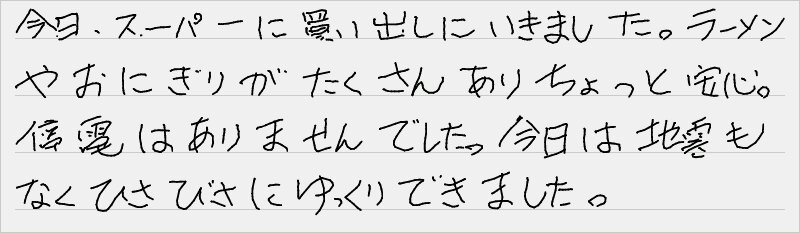 今日、スーパーに買い出しにいきました。ラーメン
やおにぎりがたくさんありちょっと安心。
停電はありませんでした。今日は地震も
なくひさびさにゆっくりできました。